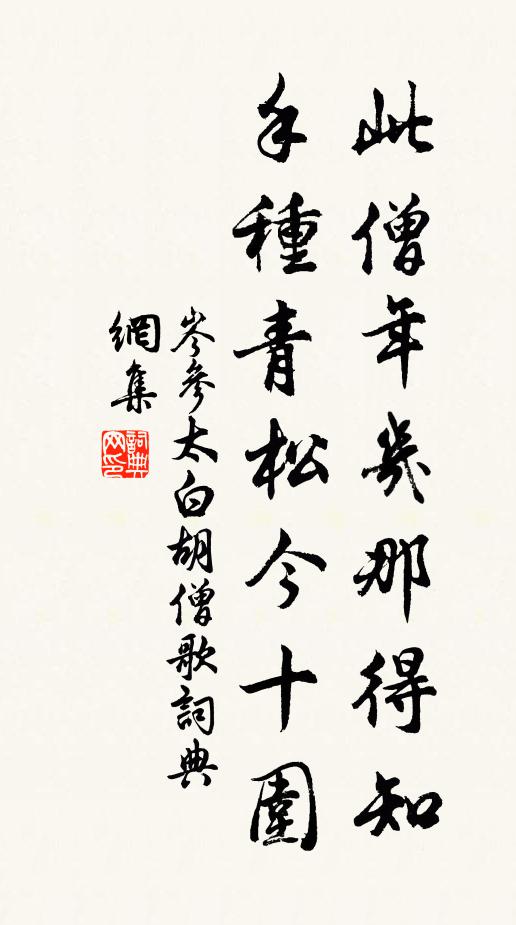 此僧年幾那得知
手種青松今十圍
岑參太白胡僧歌詞典
網集
詞典网印